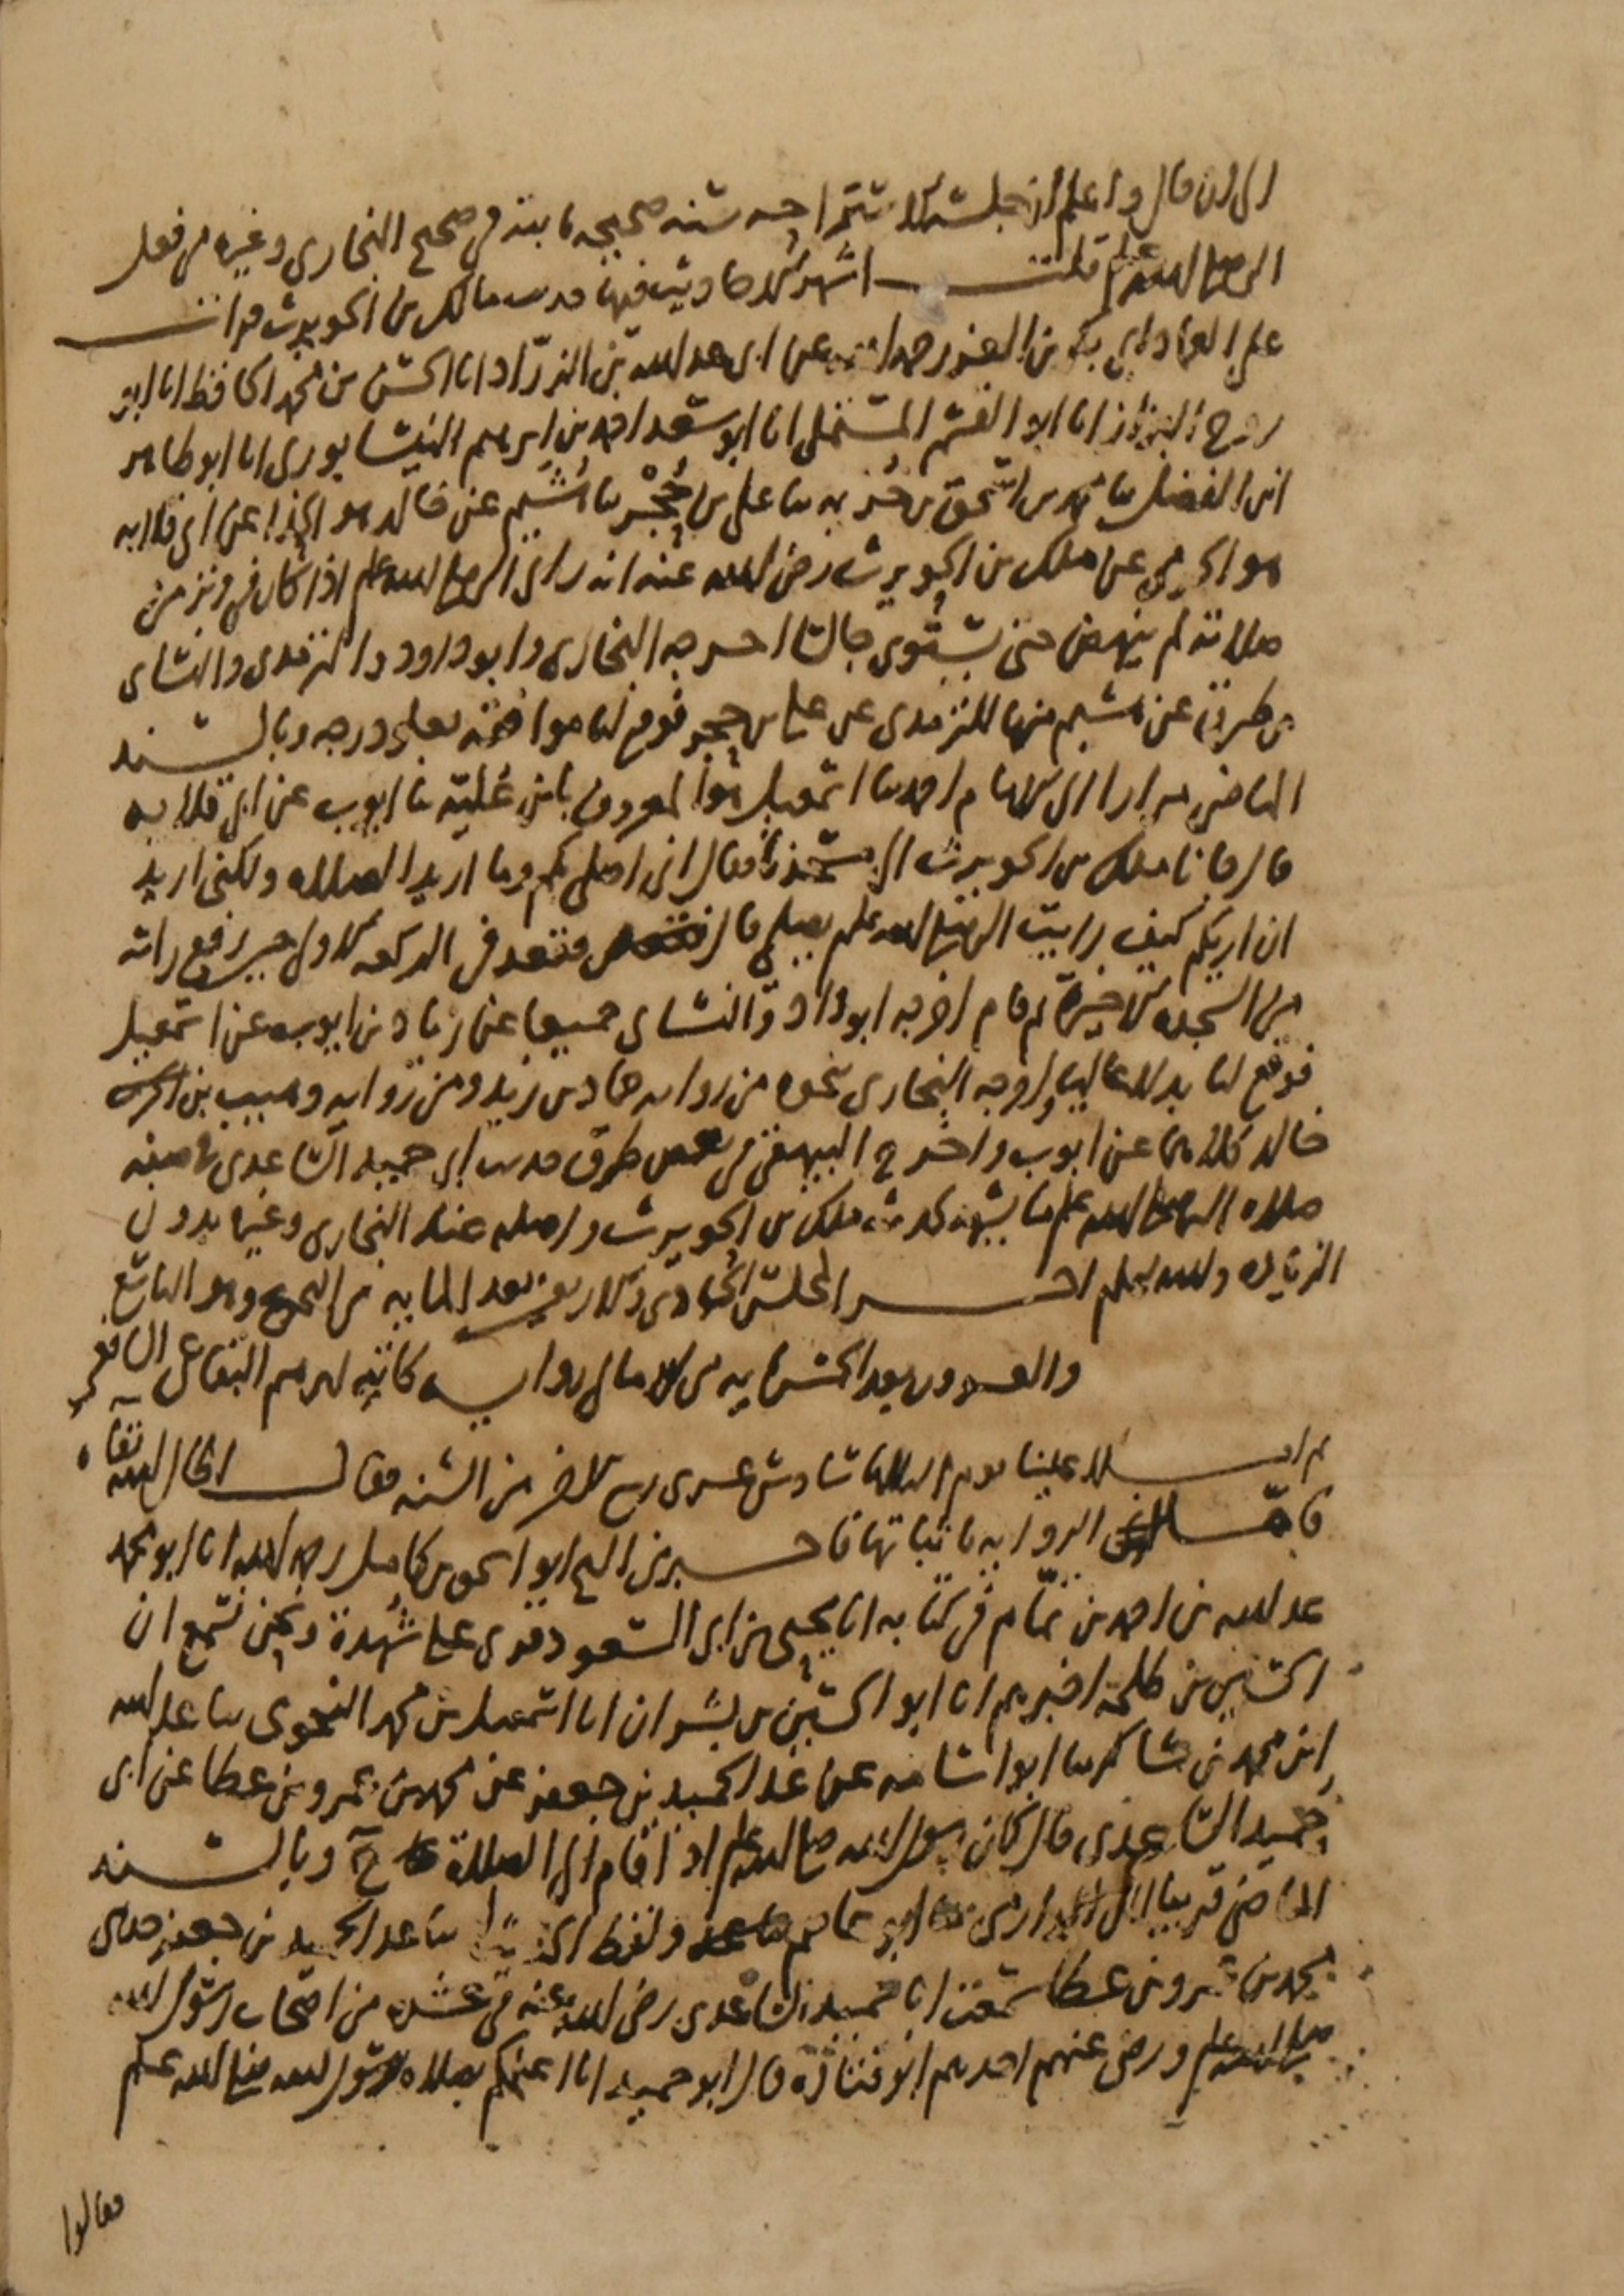 الى ان قال واعلم ان جلسه الاستراحه سنه صحيحه ثابتة في صحيح البخارى وغيره من فعل
النبي صلى الله عليه وسلم قلت اشهر الاحاديث فيها حديث مالك بن الحويرث قرات
على العماد ابى بكر بن العز رحمه الله عن ابى عبد الله بن الزرّاد انا الحسن بن محمد الحافظ انا ابو
روح البزاز انا ابو القسم المستملى انا ابو سعد احمد بن ابرهيم النيسابورى انا ابو طاهر
ابن الفضل سا محمد بن اسحق بن خزيمه سا على بن حُجْر سا هُشَيم عن خالد هو الحذا عن ابى قلابه
هو الجرمى عن ملك بن الحويرث رضى الله عنه انه راى النبي صلى الله عليه وسلم اذا كان في وتر من
صلاته لم ينهض حتى يستوى جالسا اخرجه البخارى وابو داود والترمذى والنساى
من طرق عن هشيم منها للترمذى عن على بن حجر فوقع لنا موافقة بعلو درجه وبالسند
الماضى مرارا الى الامام احمد سا اسمعيل هو المعروف بابن عُليّه نا ايوب عن ابى قلابه
قال جانا ملك بن الحويرث الى مسجدنا فقال انى اصلى بكم وما اريد الصلاه ولكنى اريد
ان اريكم كيف رايت النبي صلى الله عليه وسلم يصلى قال فقعد في الركعه الاولى حين رفع راسه
من السجده الاخيرة ثم قام اخرجه ابو داود والنساى جميعا عن زياد بن ايوب عن اسمعيل
فوقع لنا بدلا عاليا واخرجه البخارى نحوه من روايه حماد بن زيد ومن روايه وهيب بن
خالد كلاهما عن ايوب واخرج البيهقى في بعض طرق حديث ابى حميد الساعدى في صفه
صلاه النبي صلى الله عليه وسلم ما يشهد لحديث ملك بن الحويرث واصله عند البخارى وغيره بدون
الزياده والله اعلم اخر المجلس الحادى والاربعين بعد المايه من التخريج وهو التاسع
والعشرون بعد الخمسمايه من الامالى روايه كاتبه ابرهيم البقاعى الشافعى
ثم املا علينا يوم الثلاثا سادس عشرى ربيع الاخر من السنه فقال اطال الله بقاه
فامّا الروايه باثباتها فاخبرنى الشيخ ابو اسحق بن كامل رحمه الله انا ابو محمد
عبد الله بن احمد بن تمّام في كتابه انا يحيى بن ابى السعود قرى على شُهدة ونحن نسمع ان
الحسين بن طلحة اخبرهم انا ابو الحسين بن بشران انا اسمعيل بن محمد النحوى سا عبد الله
ابن محمد بن شاكر سا ابو اسامه عن عبد الحميد بن جعفر عن محمد بن عمرو بن عطا عن ابى
حميد الساعدى قال كان رسول الله صلى الله عليه وسلم اذا قام الى الصلاة ح وبالسند
الماضى قريبا الى الدارمى ابو عاصم ولفظ الحديث له سا عبد الحميد بن جعفر حدثنى
محمد بن عمرو بن عطا سمعت ابا حميد الساعدى رضى الله عنه في عشره من اصحاب رسول الله
صلى الله عليه وسلم ورضى عنهم احدهم ابو قتادة قال ابو حميد انا اعلمكم بصلاه رسول الله صلى الله عليه وسلم
فقالوا